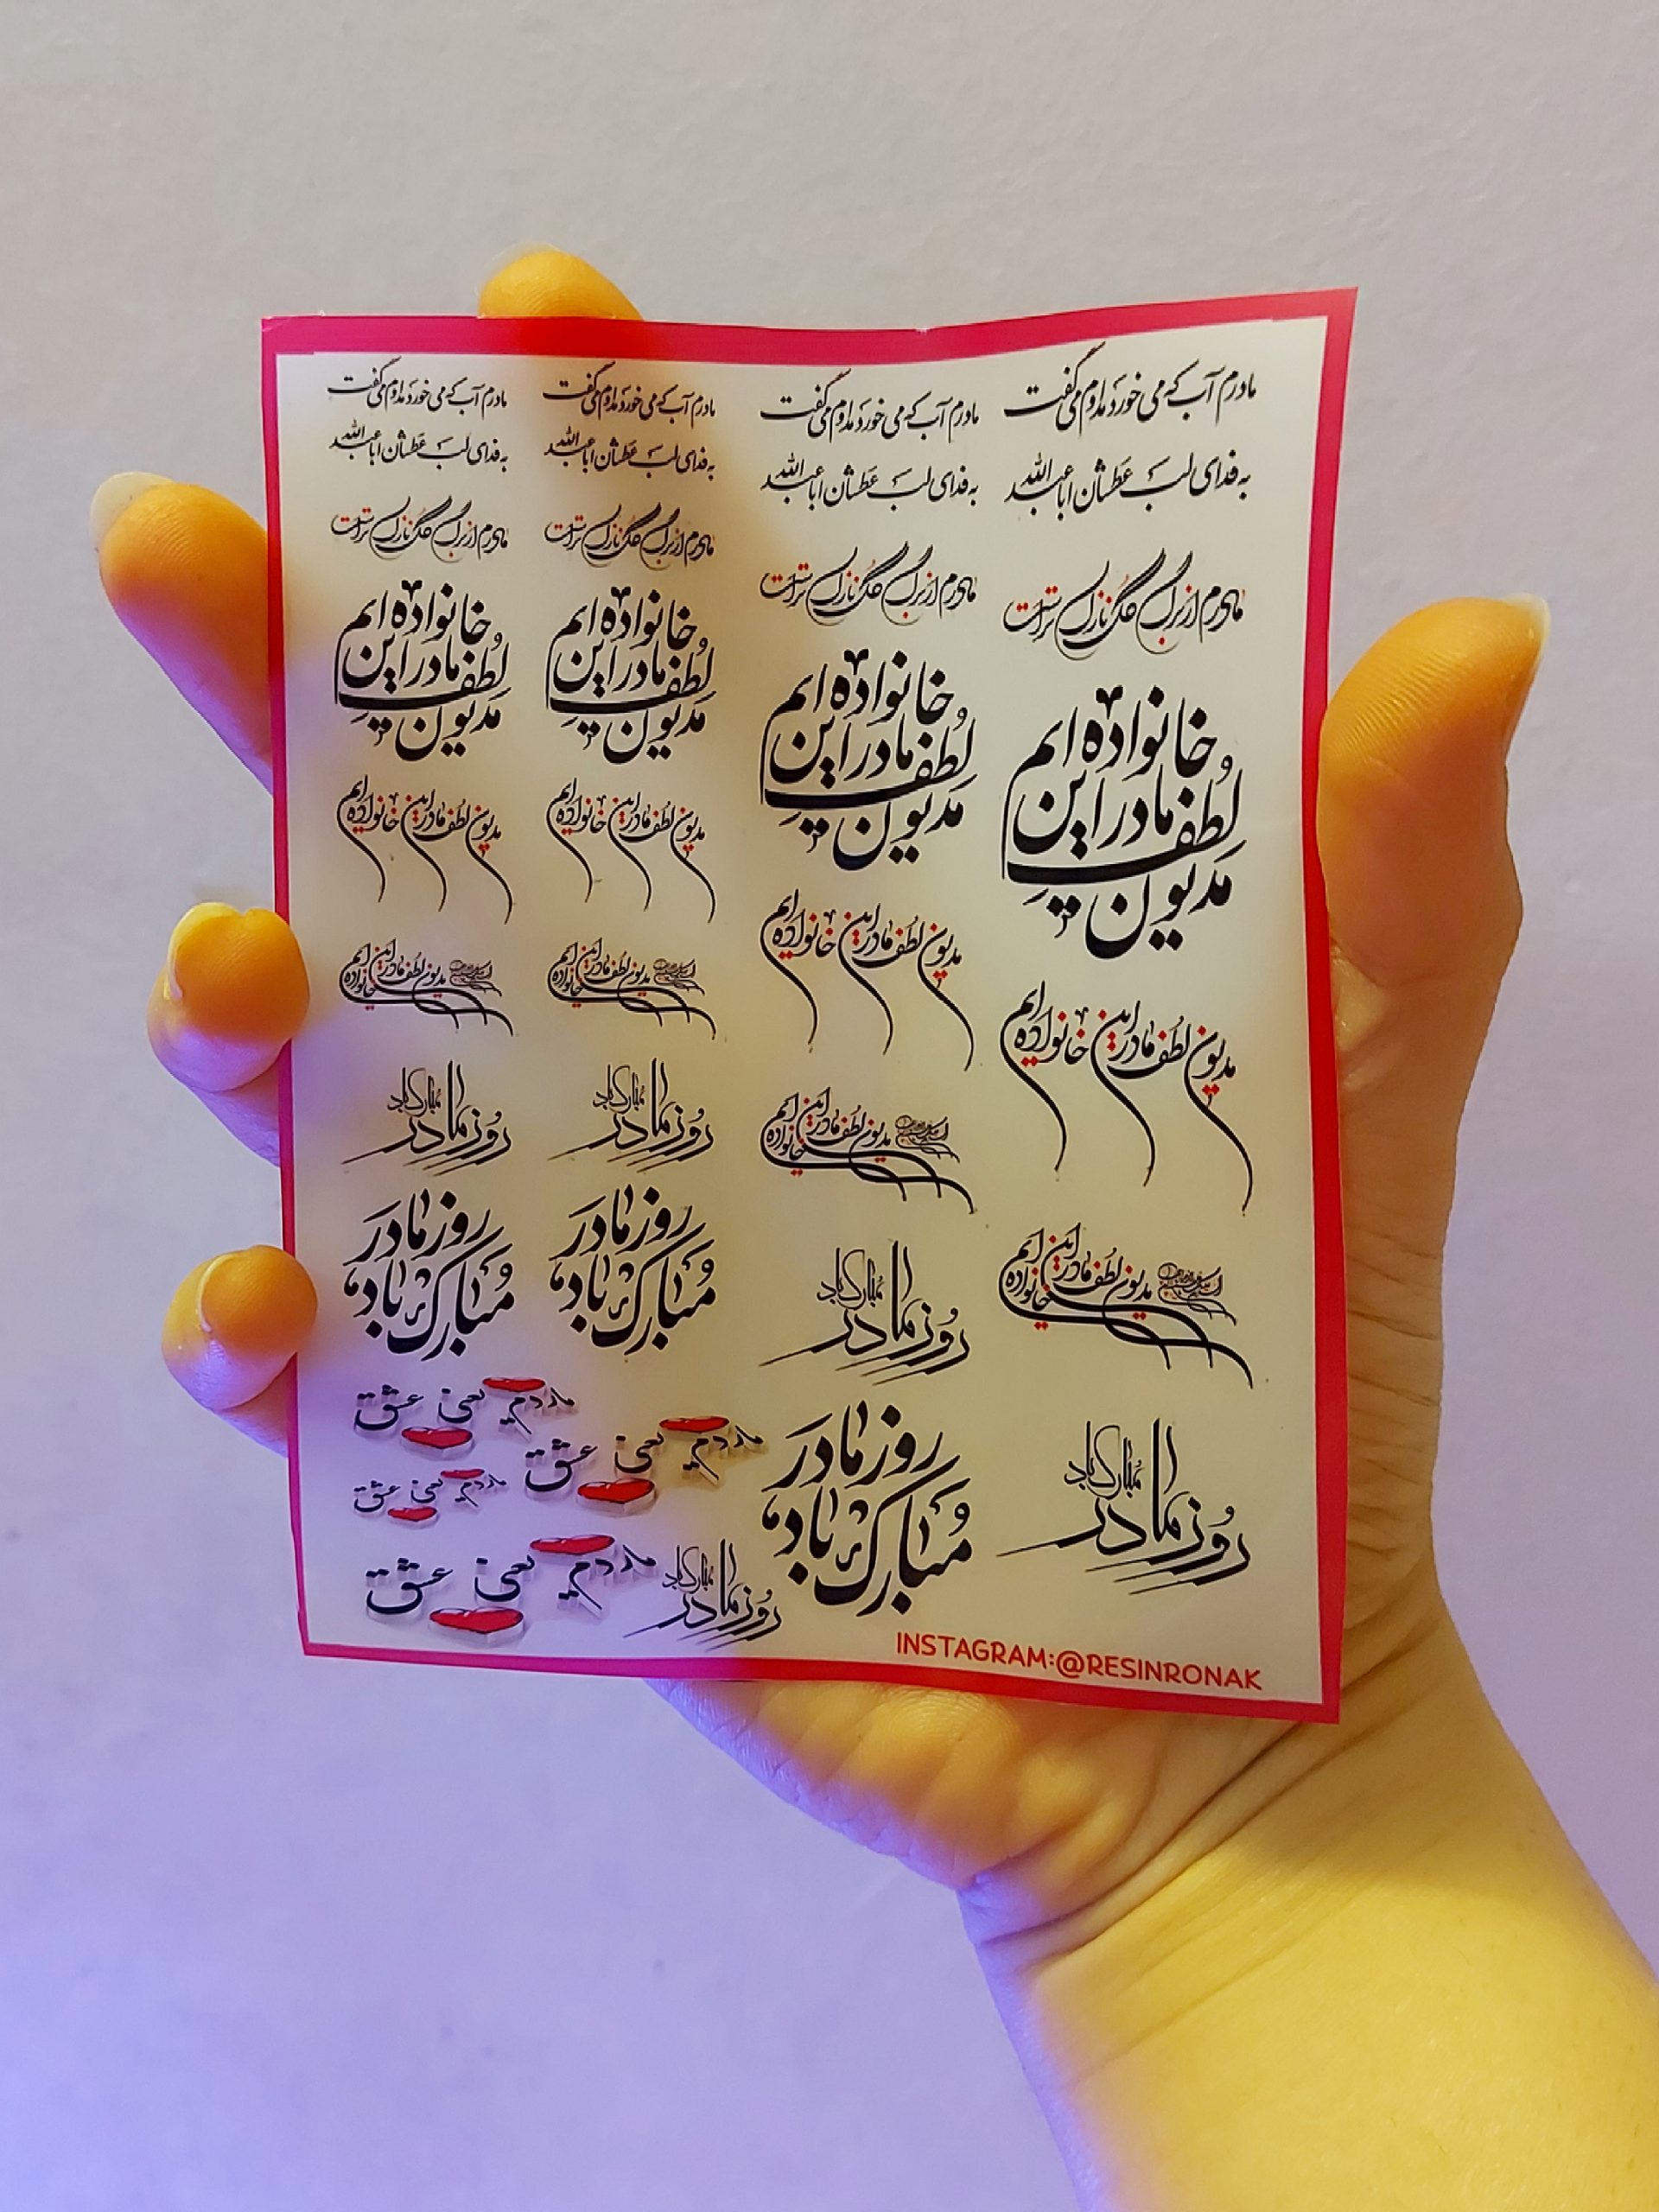 مادرم آب که می خورد مدام می گفت
به فدای لب عطشان اباعبدالله
مادرم از برگ گل نازک تر است
مدیون لطف مادر این خانواده ایم
مدیون لطف مادر این خانواده ایم
مدیون لطف مادر این خانواده ایم
روز مادر مبارک باد
مادرم آب که می خورد مدام می گفت
به فدای لب عطشان اباعبدالله
مادرم از برگ گل نازک تر است
مدیون لطف مادر این خانواده ایم
مدیون لطف مادر این خانواده ایم
مدیون لطف مادر این خانواده ایم
روز مادر مبارک باد
روز مادر
مبارک باد
مادرم آب که می خورد مدام می گفت
به فدای لب عطشان اباعبدالله
مادرم از برگ گل نازک تر است
مدیون لطف مادر این خانواده ایم
مدیون لطف مادر این خانواده ایم
مدیون لطف مادر این خانواده ایم
روز مادر مبارک باد
روز مادر
مبارک باد
مادرم آب که می خورد مدام می گفت
به فدای لب عطشان اباعبدالله
مادرم از برگ گل نازک تر است
مدیون لطف مادر این خانواده ایم
مدیون لطف مادر این خانواده ایم
مدیون لطف مادر این خانواده ایم
روز مادر مبارک باد
روز مادر
مبارک باد
مادرم یعنی عشق
مادرم یعنی عشق
مادرم یعنی عشق
مادرم یعنی عشق
روز مادر مبارک باد
INSTAGRAM:@RESINRONAK